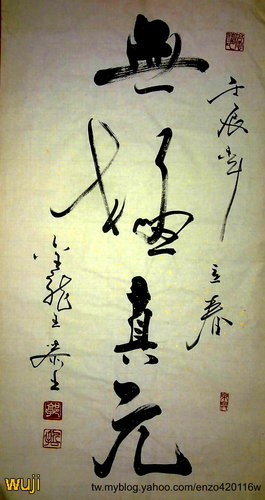 壬辰年
立春
無極真元
金龍生
wuji
tw.myblog.yahoo.com/enzo420116w